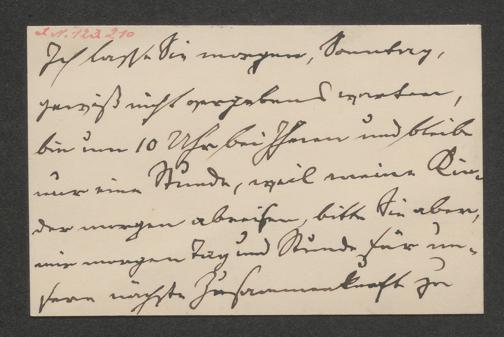 I.N. 123.210
Ich lasse Sie morgen, Sonntag,
gewiß nicht vergebens warten,
bin um 10 Uhr bei Ihnen und bleibe
nur eine Stunde, weil meine Kin-
der morgen abreisen, bitte Sie aber,
mir morgen Tag und Stunde für un-
sere nächste Zusammenkunft zu